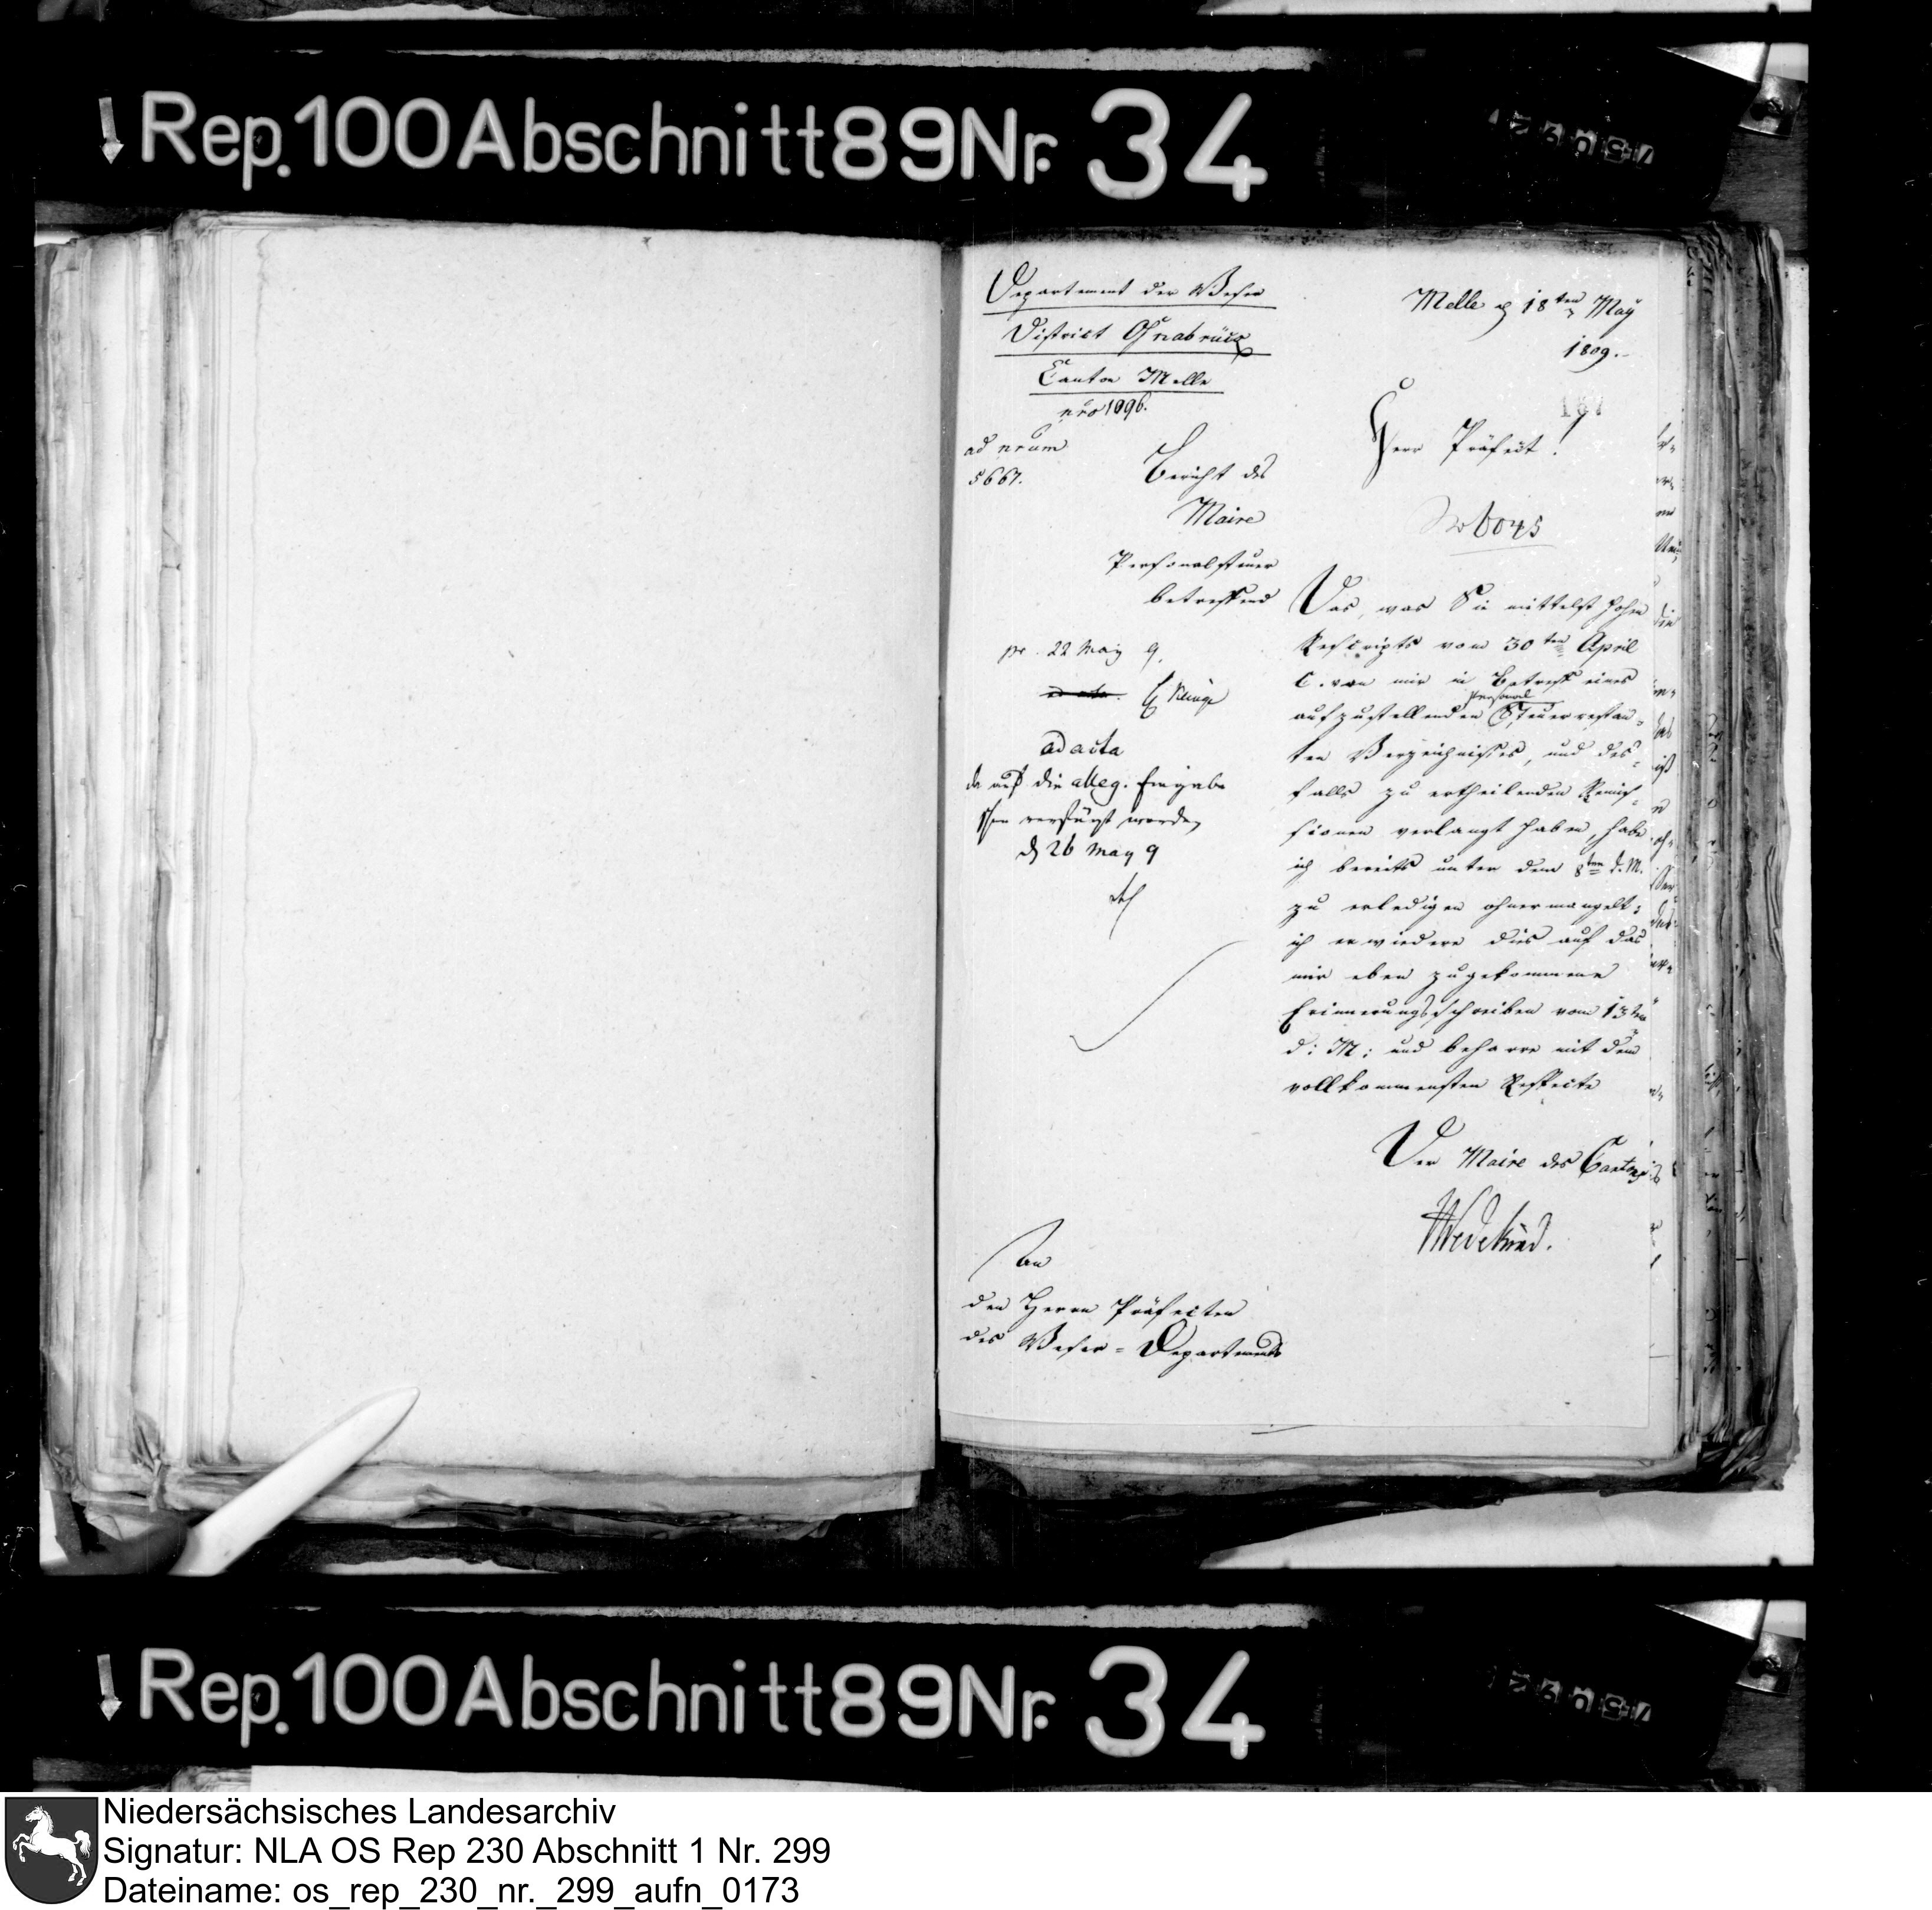 Rep. 100 Abschnitt 89 Nr. 34
Departement der Weser
District Osnabrück
Canton Melle
nro 1096.
ad nrum
5667.
Bericht des
Maire
Personalsteuer
betreffend
pr. 22 May 9.
ad acta
da auf die alleg. Eingabe
schon verfügt worden
d 26 May 9
An
den Herrn Präfecten
des Weser-Departements
Melle d 18ten May
1809.
187
Herr Präfect!
No 6045
Das, was Sie mittelst hohen
Rescripts vom 30ten April
c. von mir in Betreff eines
aufzustellenden Personal Steuerrestan-
ten Verzeichnisses, und des-
falls zu ertheilenden Remis-
sionen verlangt haben, habe
ich bereits unter dem 8ten d. M.
zu erledigen ohnermangelt;
ich erwiedere dies auf das
mir eben zugekommene
Erinnerungsschreiben vom 13ten
d: M: und beharre mit dem
vollkommensten Respecte
Der Maire des Cantons
Wedekind.
Rep. 100 Abschnitt 89 Nr. 34
Niedersächsisches Landesarchiv
Signatur: NLA OS Rep 230 Abschnitt 1 Nr. 299
Dateiname: os_rep_230_nr._299_aufn_0173